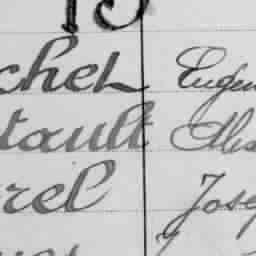 15
chel Eugen
tault Alex
rel Josep